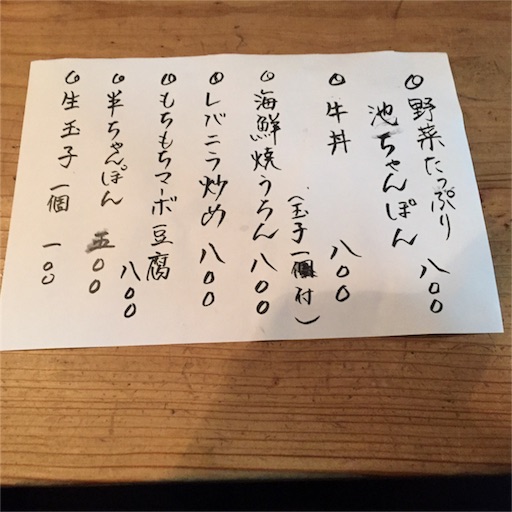 野菜たっぷり
池ちゃんぽん 八〇〇
牛丼 八〇〇
(玉子一個付)
海鮮焼うろん 八〇〇
レバニラ炒め 八〇〇
もちもちマーボ豆腐
八〇〇
半ちゃんぽん 五〇〇
生玉子 一個 一〇〇